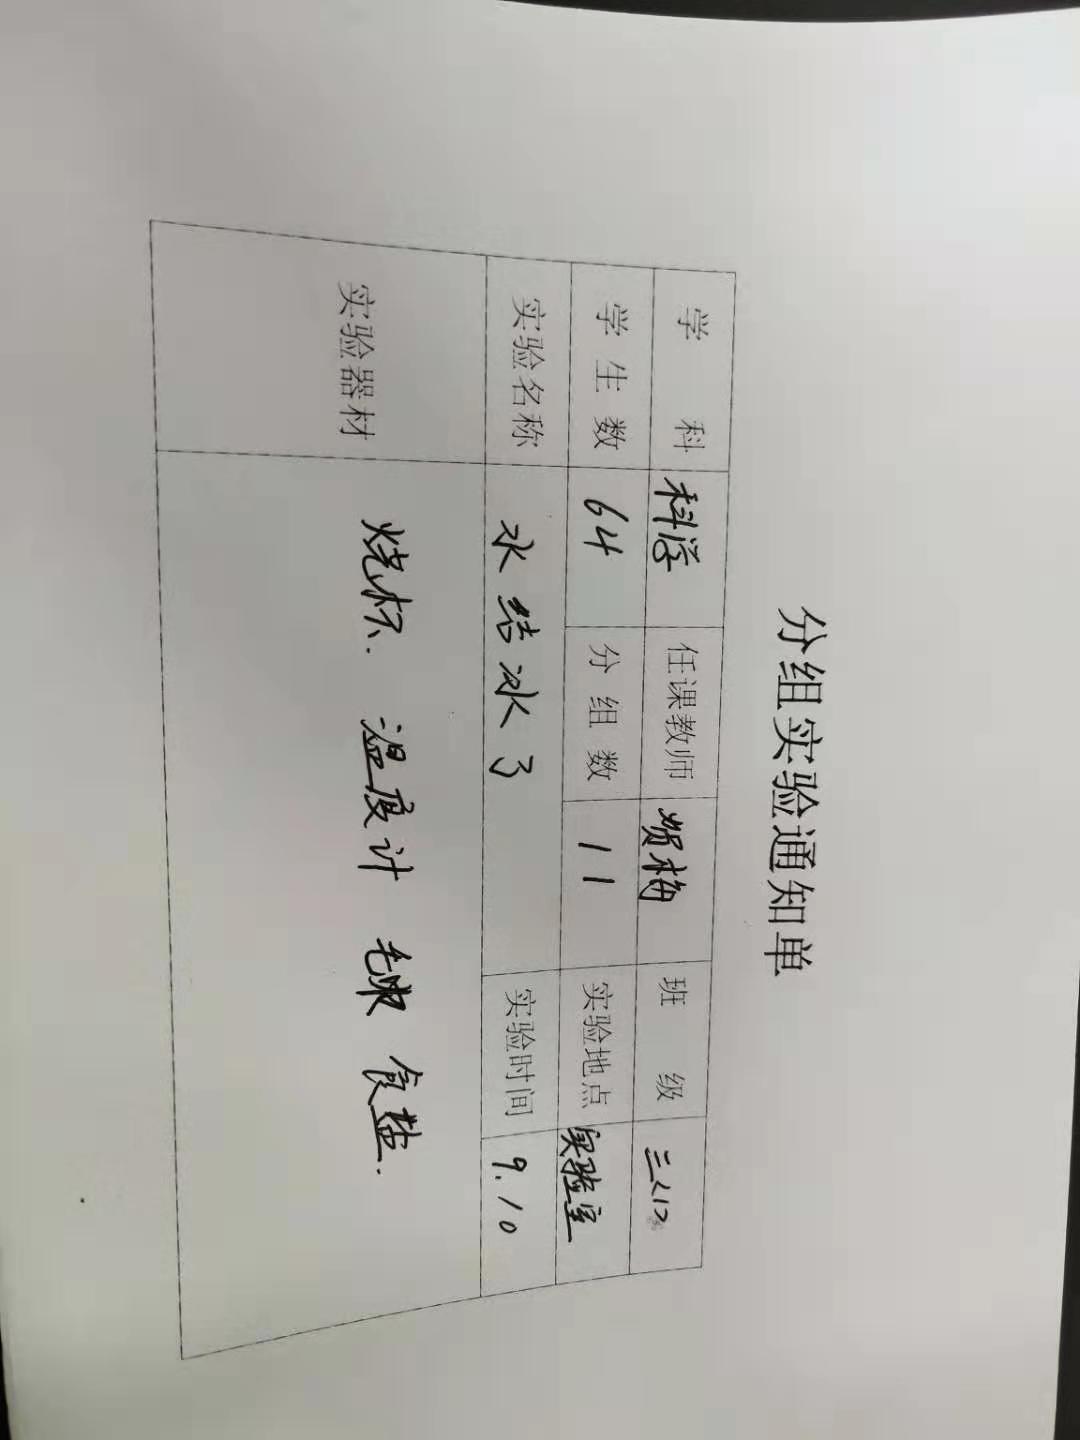 分组实验通知单
学 科 科学 任课教师 梅 班 级 三〈1〉
学生数 64 分组数 11 实验地点 实验室
实验名称 水结冰了 实验时间 9.10
实验器材 烧杯、温度计 食盐.